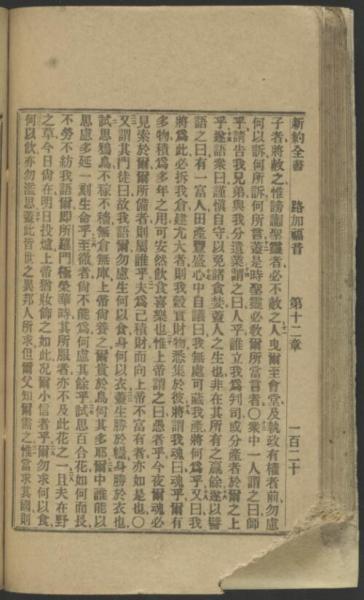 新約全書 路加福音 第十二章 一百二十
子者將赦之惟謗讟聖靈者必不赦之人曳爾至會堂及執政有權者前勿慮
何以訴何所訴何所言蓋是時聖靈必教爾所當言者○衆中一人謂之曰師
乎請告我兄弟與我分遺業謂之曰人乎誰立我爲判司或分產者於爾之上
乎遂語衆曰謹愼自守以免諸貪婪蓋人之生也非在其所有之贏餘遂以譬
語之曰有一富人田產豐盛心中自議曰我無處可藏我產將何爲乎又曰我
將爲此必拆我倉建尤大者則我穀實財物悉集於彼將謂我魂曰魂乎爾有
多物積爲多年之用可安然飲食喜樂也惟上帝謂之曰愚者乎今夜爾魂必
見索於爾爾所備者則屬誰乎夫爲己積財而向上帝不富有者亦如是也○
又謂其門徒曰故我語爾勿慮生何以食身何以衣蓋生勝於糧身勝於衣也
試思鴉鳥不稼不穡無倉無庫上帝尙養之爾貴於鳥何其多耶爾中誰能以
思慮多延一刻生命乎至微者尙不能爲何慮其餘乎試思百合花如何而長
不勞不紡我語爾卽所羅門極榮華時其所服者亦不及此花之一且夫在野
之草今日尙在明日投爐上帝猶妝飾之如此況爾小信者乎爾勿求何以食
何以飲亦勿濫思蓋此皆世之異邦人所求但爾父知爾需之惟當求其國則